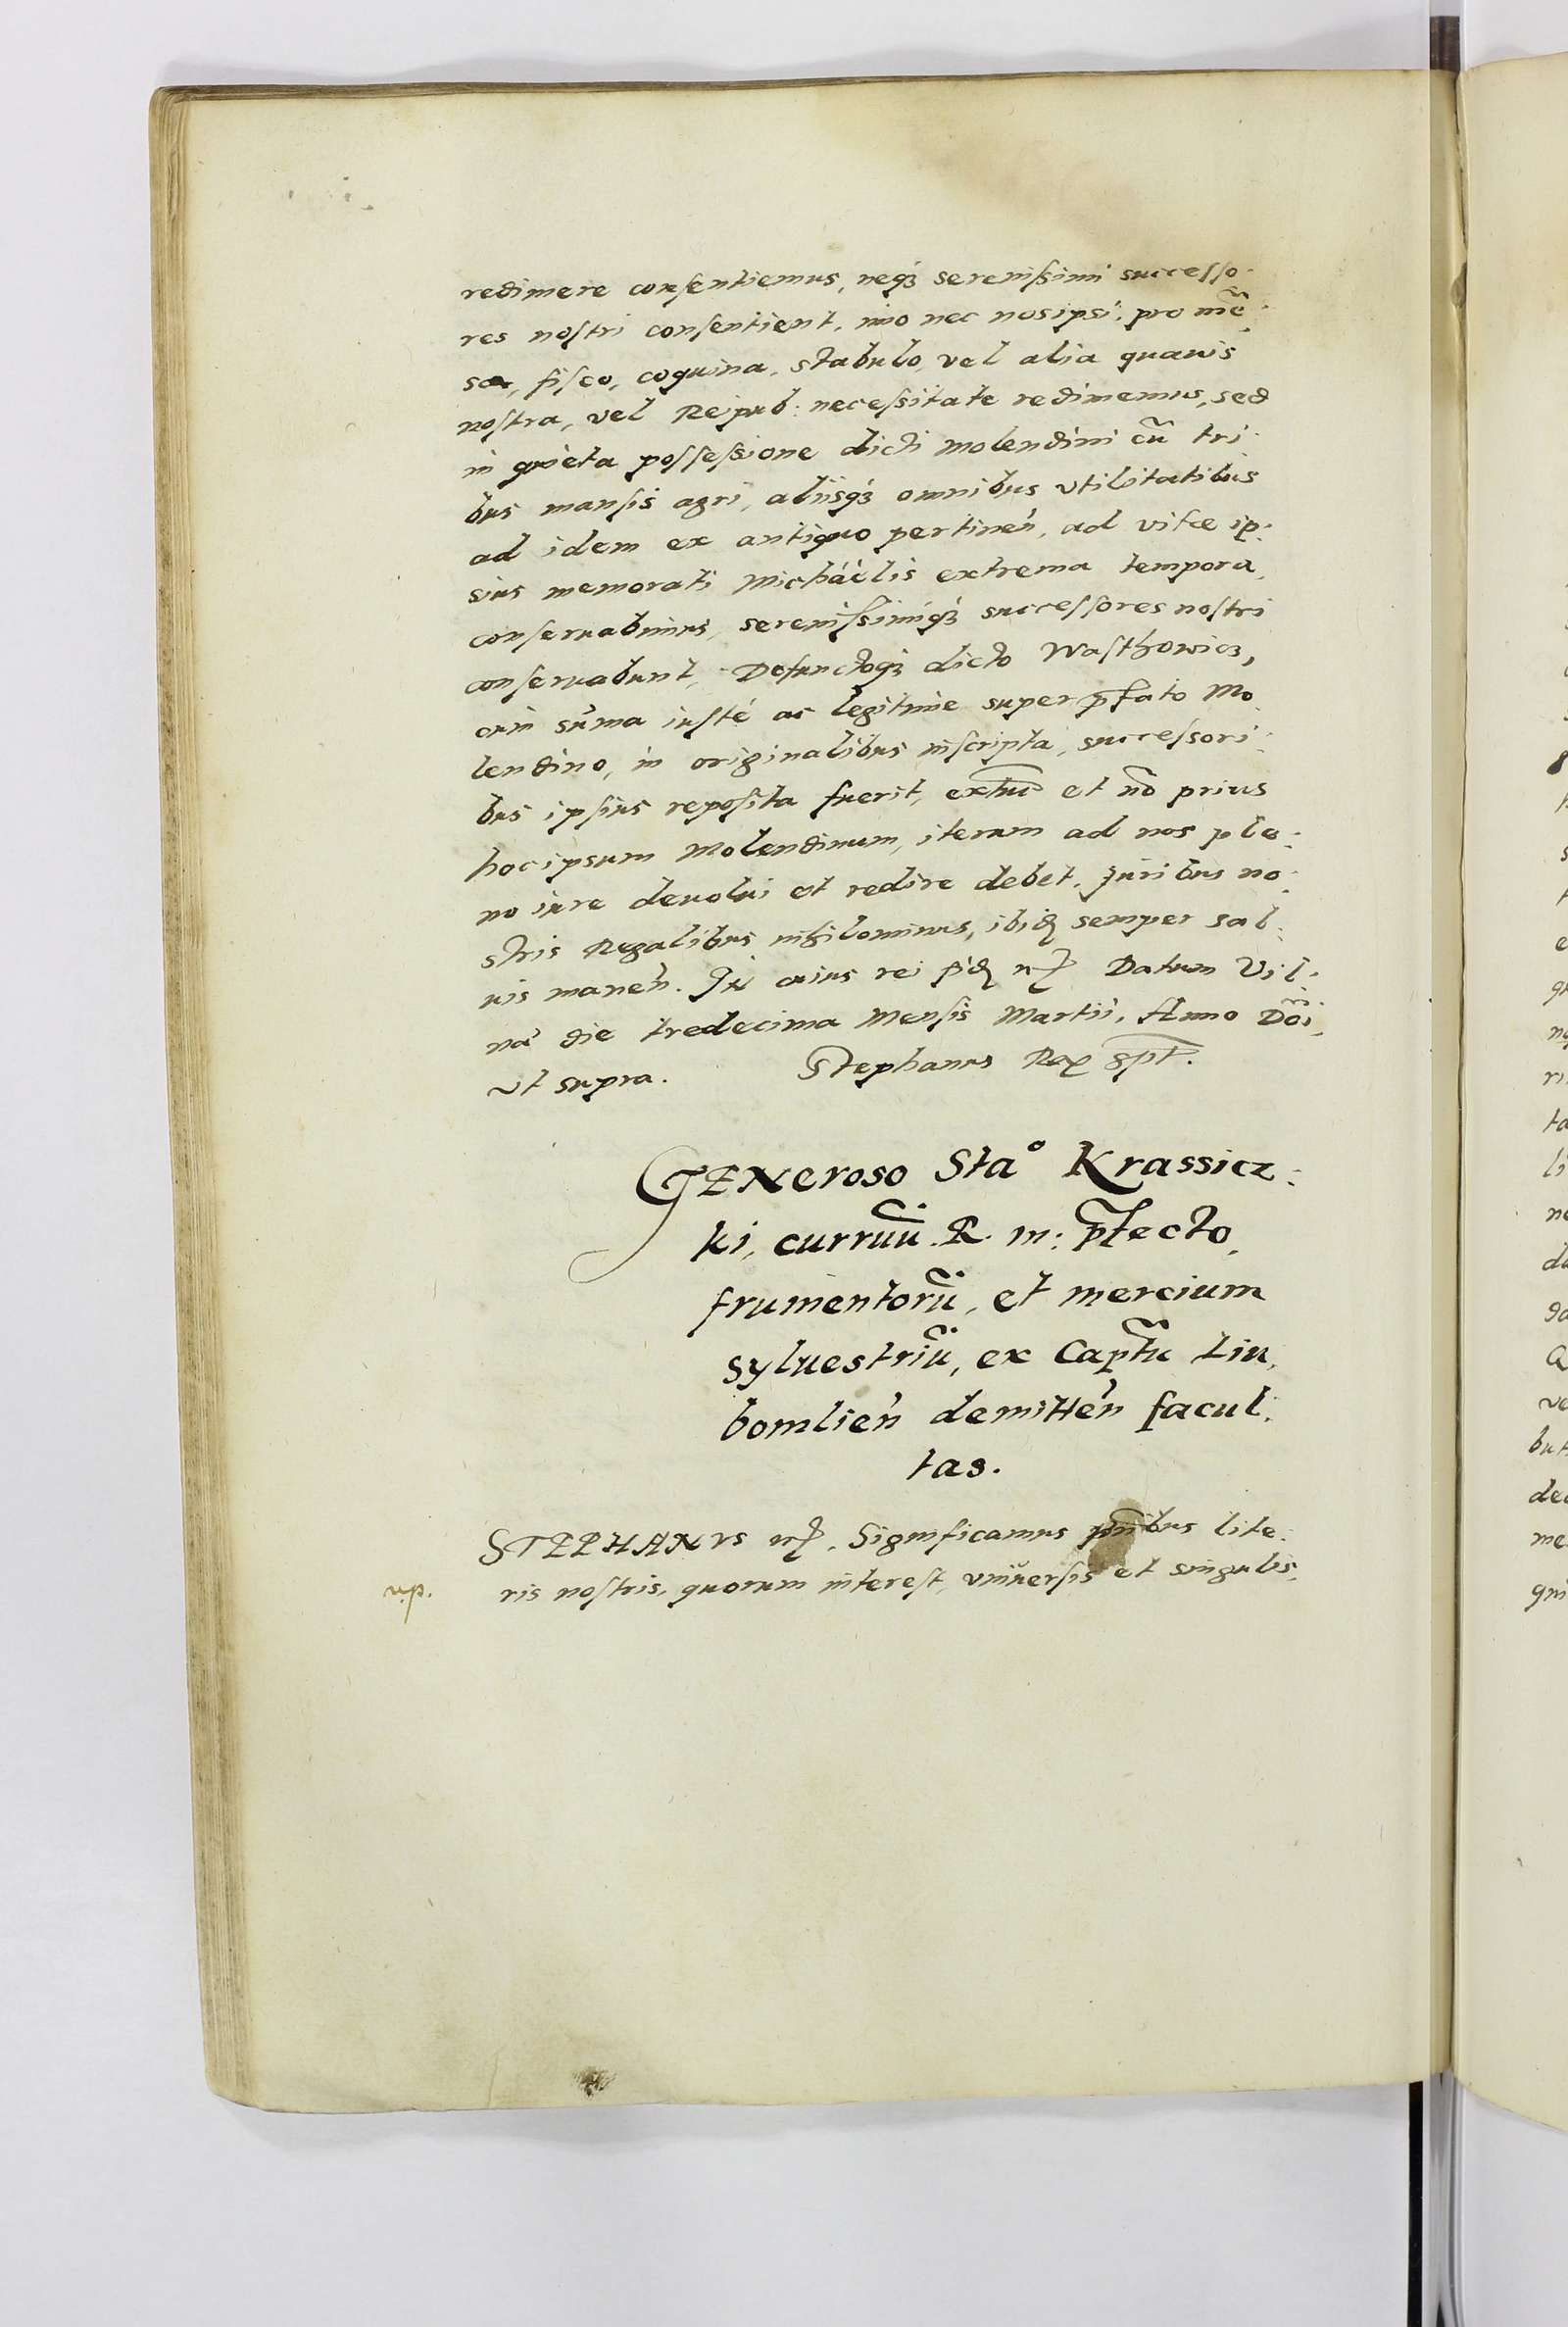 redimere consentiemus, neq₃ serenissimi successo-
res nostri consentient, imo nec nos ipsi, pro mẽ-
sa, fisco, coquina, stabulo, vel alia quauis
nostra, vel Reipub: necessitate redimemus, sed
in quieta possessione dicti molendini cũ tri-
bus mansis agri, aliisq₃ omnibus vtilitatibus
ad idem ex antiquo pertineñ, ad vitæ ip-
sius memorati Michaëlis extrema tempora,
conseruabimus, serenissimiq₃ successores nostri
conseruabunt, Defunctoq₃ dicto Wasthowicz,
cum sũma iusté ac legitime super p̃fato Mo
lendino, in originalibus inscripta, successori-
bus ipsius reposita fuerit, extũc et nõ prius
hoc ipsum Molendinum, iterum ad nos ple-
no iure deuolui et redire debet. Juribus no-
stris Regalibus nihilominus, ibid₃ semper sal-
uis maneñ. In cuius rei fid₃ etc Datum Vil-
næ die tredecima Mensis Martii, Anno Dñi
vt supra. Stephanus Rex spt.
GENeroso Sta° Krassicz-
ki, curruũ R. M: p̃fecto,
frumentorũ, et mercium
syluestriũ, ex Capt̃u Liu,
bomlieñ demitteñ facul,
tas.
STEPHANVS etc. Significamus p̃ñtibus lite-
ris nostris, quorum interest, vniuersis et singulis,